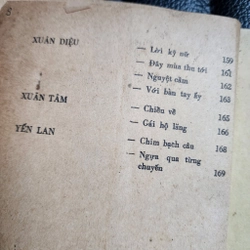 XUÂN DIỆU
— Lời kỹ nữ 159
— Đây mùa thu tới 161
— Nguyệt cầm 162
— Với bàn tay ấy
XUÂN TÂM
— Chiều về 165
— Gái hộ lăng 166
YẾN LAN
— Chim bạch câu 168
— Ngựa qua từng
chuyến 169